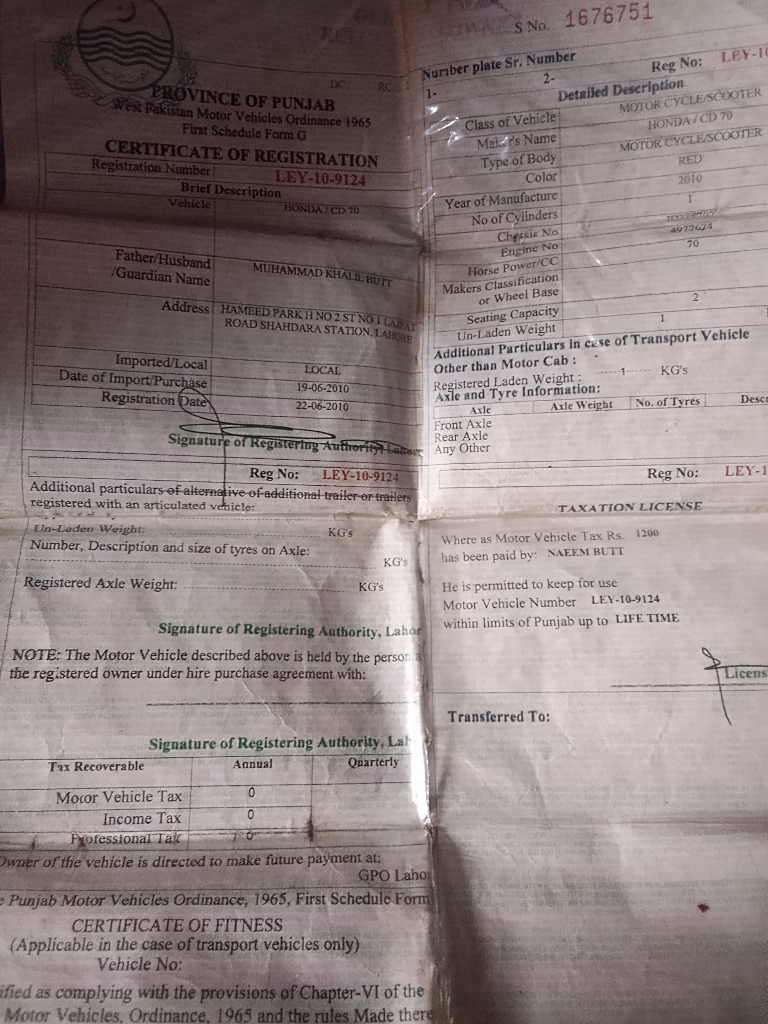 PROVINCE OF PUNJAB
West Pakistan Motor Vehicles Ordinance 1965
First Schedule Form G
CERTIFICATE OF REGISTRATION
Registration Number LEY-10-9124
Brief Description
Vehicle HONDA / CD 70
Father/Husband
/Guardian Name MUHAMMAD KHALIL BUTT
Address HAMEED PARK H NO 2 ST NO 1
ROAD SHAHDARA STATION, LAHORE
Imported/Local LOCAL
Date of Import/Purchase 19-06-2010
Registration Date 22-06-2010
Signature of Registering Authority, Lahore
Reg No: LEY-10-9124
Additional particulars of alternative of additional trailer or trailers
registered with an articulated vehicle:
Un-Laden Weight: KG's
Number, Description and size of tyres on Axle:
KG's
Registered Axle Weight: KG's
Signature of Registering Authority, Lahor
NOTE: The Motor Vehicle described above is held by the person a
the registered owner under hire purchase agreement with:
Signature of Registering Authority, Lah
Tax Recoverable Annual Quarterly
Motor Vehicle Tax 0
Income Tax 0
Professional Tax 0
Owner of the vehicle is directed to make future payment at:
GPO Laho
e Punjab Motor Vehicles Ordinance, 1965, First Schedule Form
CERTIFICATE OF FITNESS
(Applicable in the case of transport vehicles only)
Vehicle No:
ified as complying with the provisions of Chapter-VI of the
Motor Vehicles, Ordinance, 1965 and the rules Made there
S No. 1676751
Number plate Sr. Number Reg No: LEY-10
1- 2-
Detailed Description
Class of Vehicle MOTOR CYCLE/SCOOTER
Maker's Name HONDA / CD 70
Type of Body MOTOR CYCLE/SCOOTER
Color RED
Year of Manufacture 2010
No of Cylinders 1
Chessie No
Engine No 4977624
Horse Power/CC 70
Makers Classification
or Wheel Base
Seating Capacity 2
Un-Laden Weight 1
Additional Particulars in case of Transport Vehicle
Other than Motor Cab :
Registered Laden Weight : 1 KG's
Axle and Tyre Information:
Axle Axle Weight No. of Tyres Descr
Front Axle
Rear Axle
Any Other
Reg No: LEY-1
TAXATION LICENSE
Where as Motor Vehicle Tax Rs. 1200
has been paid by: NAEEM BUTT
He is permitted to keep for use
Motor Vehicle Number LEY-10-9124
within limits of Punjab up to LIFE TIME
Licens
Transferred To: